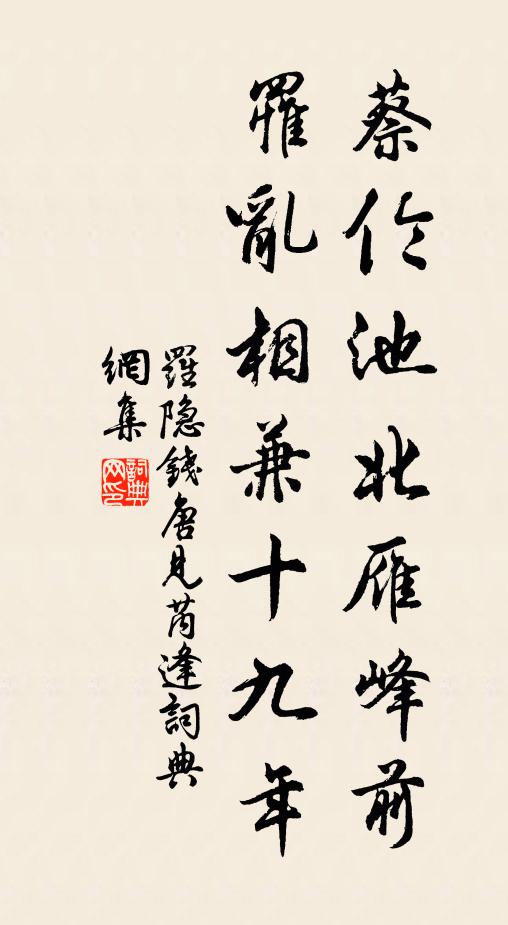 蔡伦池北雁峰前
罹亂相兼十九年
羅隐錢唐見芮逢詞典
網集
詞典網印